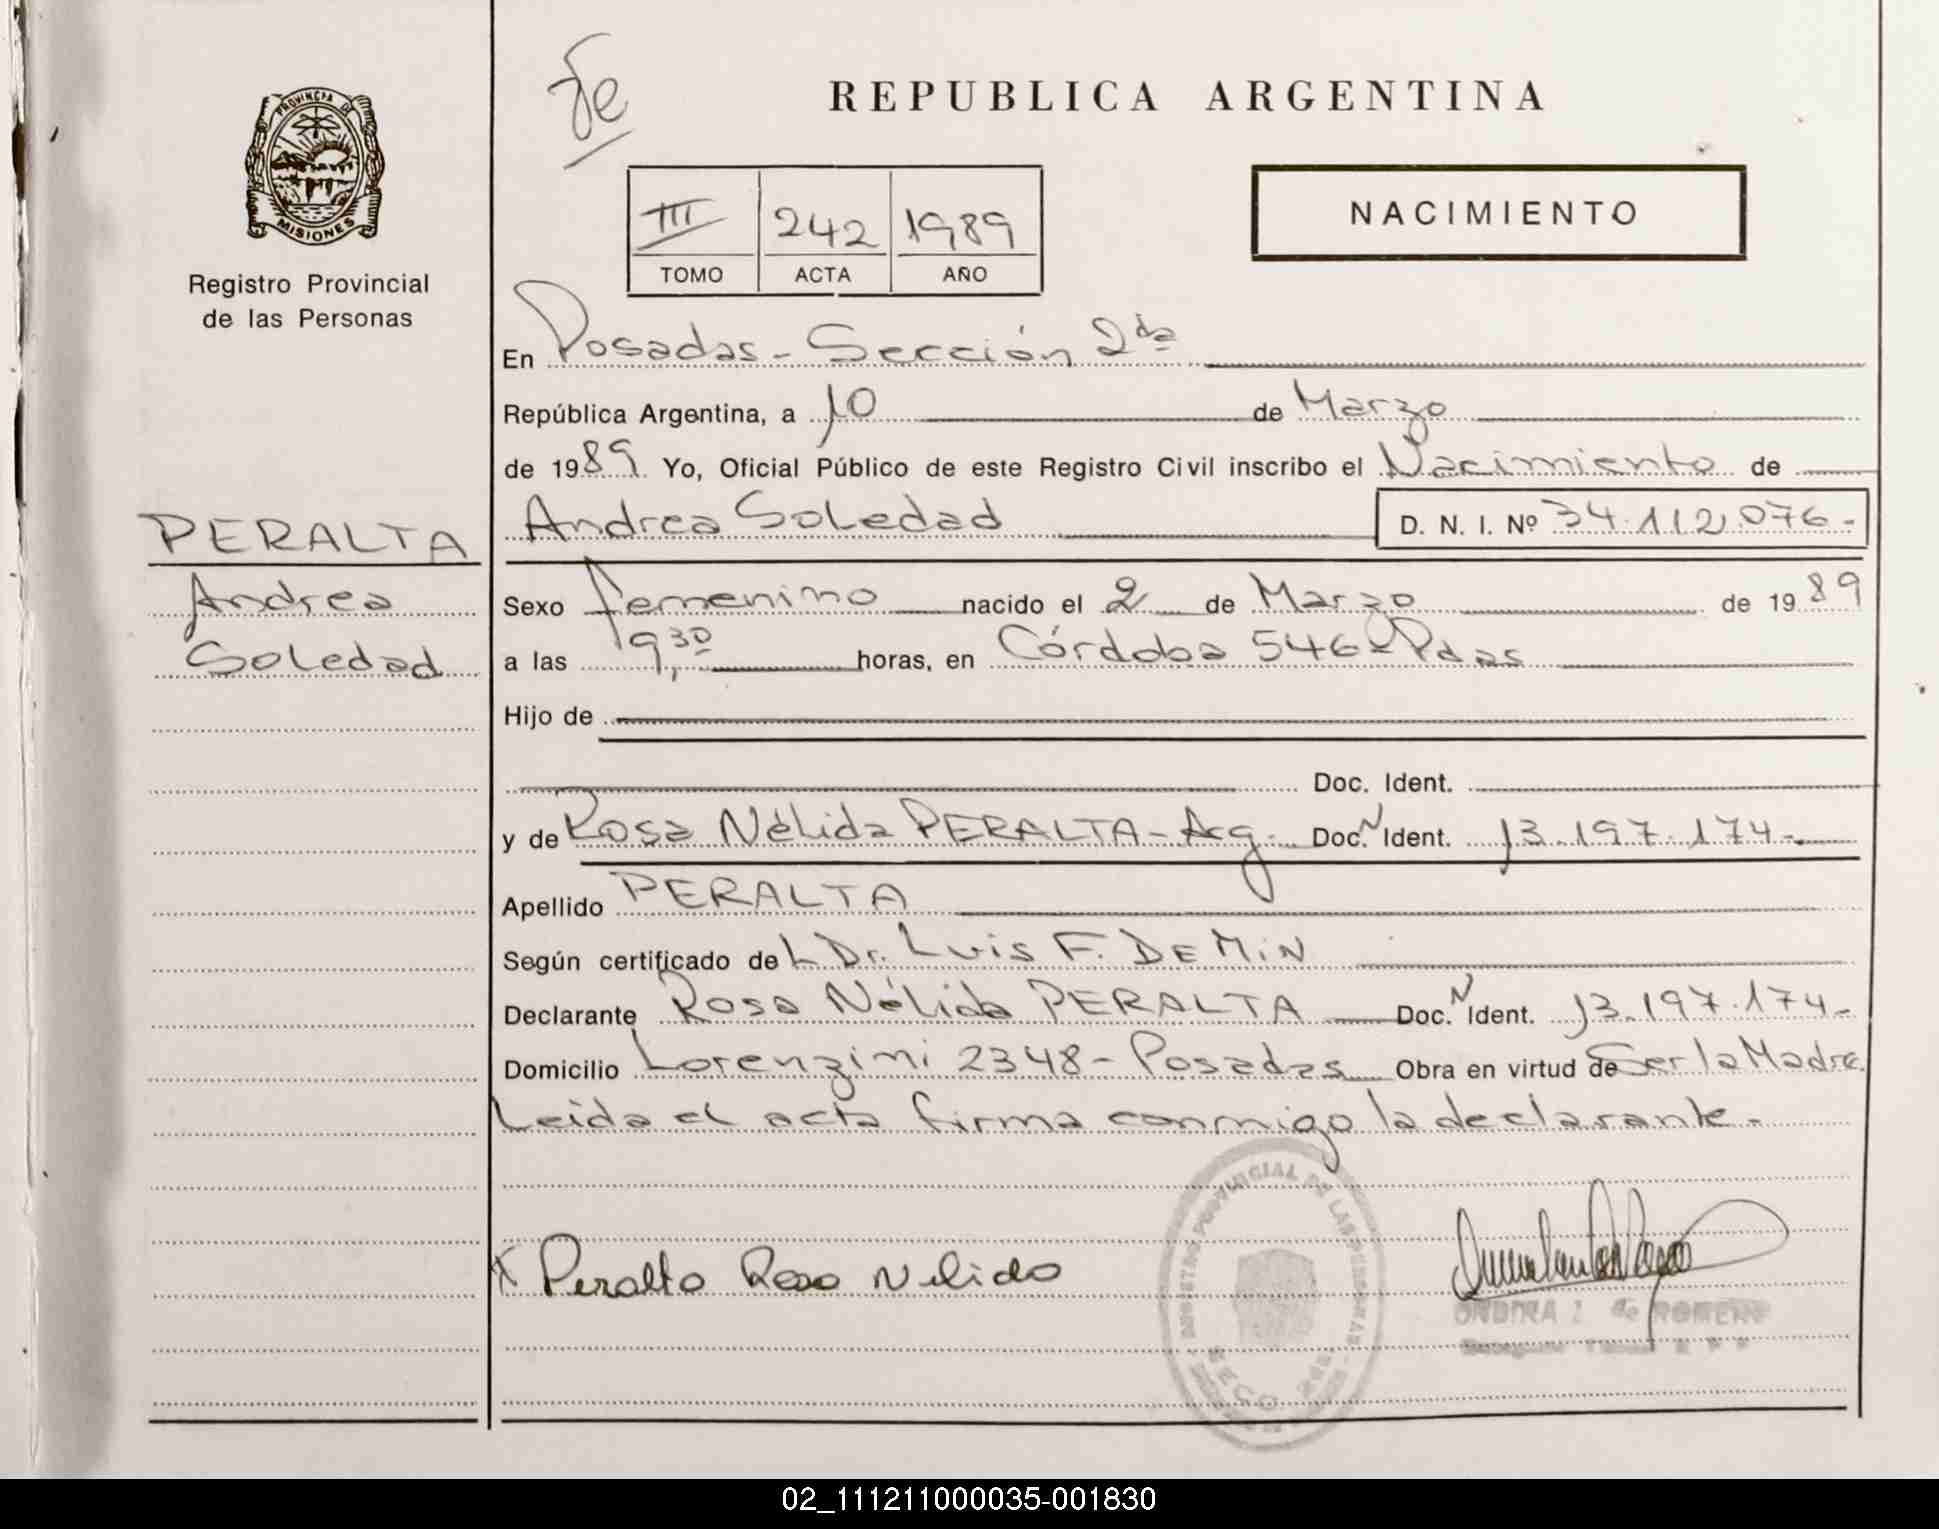 fe
REPUBLICA ARGENTINA
PROVINCIA DE
MISIONES
Registro Provincial
de las Personas
III 242 1989
TOMO ACTA AÑO
NACIMIENTO
En Posadas - Sección 2da
República Argentina, a 10 de Marzo
de 1989 Yo, Oficial Público de este Registro Civil inscribo el Nacimiento de
PERALTA
Andrea
Soledad
Andrea Soledad D. N. I. Nº 34.112.076-
Sexo femenino nacido el 2 de Marzo de 1989
a las 19,30 horas, en Córdoba 546 - Pdas
Hijo de
Doc. Ident.
y de Rosa Nélida PERALTA - Arg. Doc. N Ident. 13.197.174-
Apellido PERALTA
Según certificado de L Dr. Luis F. DE MiN
Declarante Rosa Nélida PERALTA Doc. N Ident. 13.197.174-
Domicilio Lorenzini 2348 - Posadas Obra en virtud de Ser la Madre.
Leida el acta firma conmigo la declarante.-
X Peralta Rosa Nelida
REGISTRO PROVINCIAL DE LAS PERSONAS
SECC. 2da
de ROMERO
02_111211000035-001830